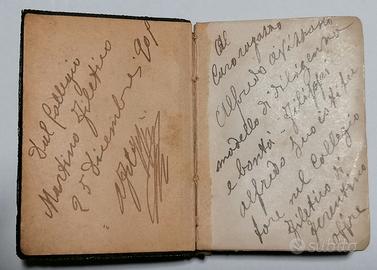 Dal Collegio
Martino Filetico
25 Dicembre 901
Al
Caro ragazzo
Alfredo
modello di diligenza
e bontà - Filippi
Alfredo Suo istitu
tore nel Collegio
Filetico di
Ferentino
subito.it